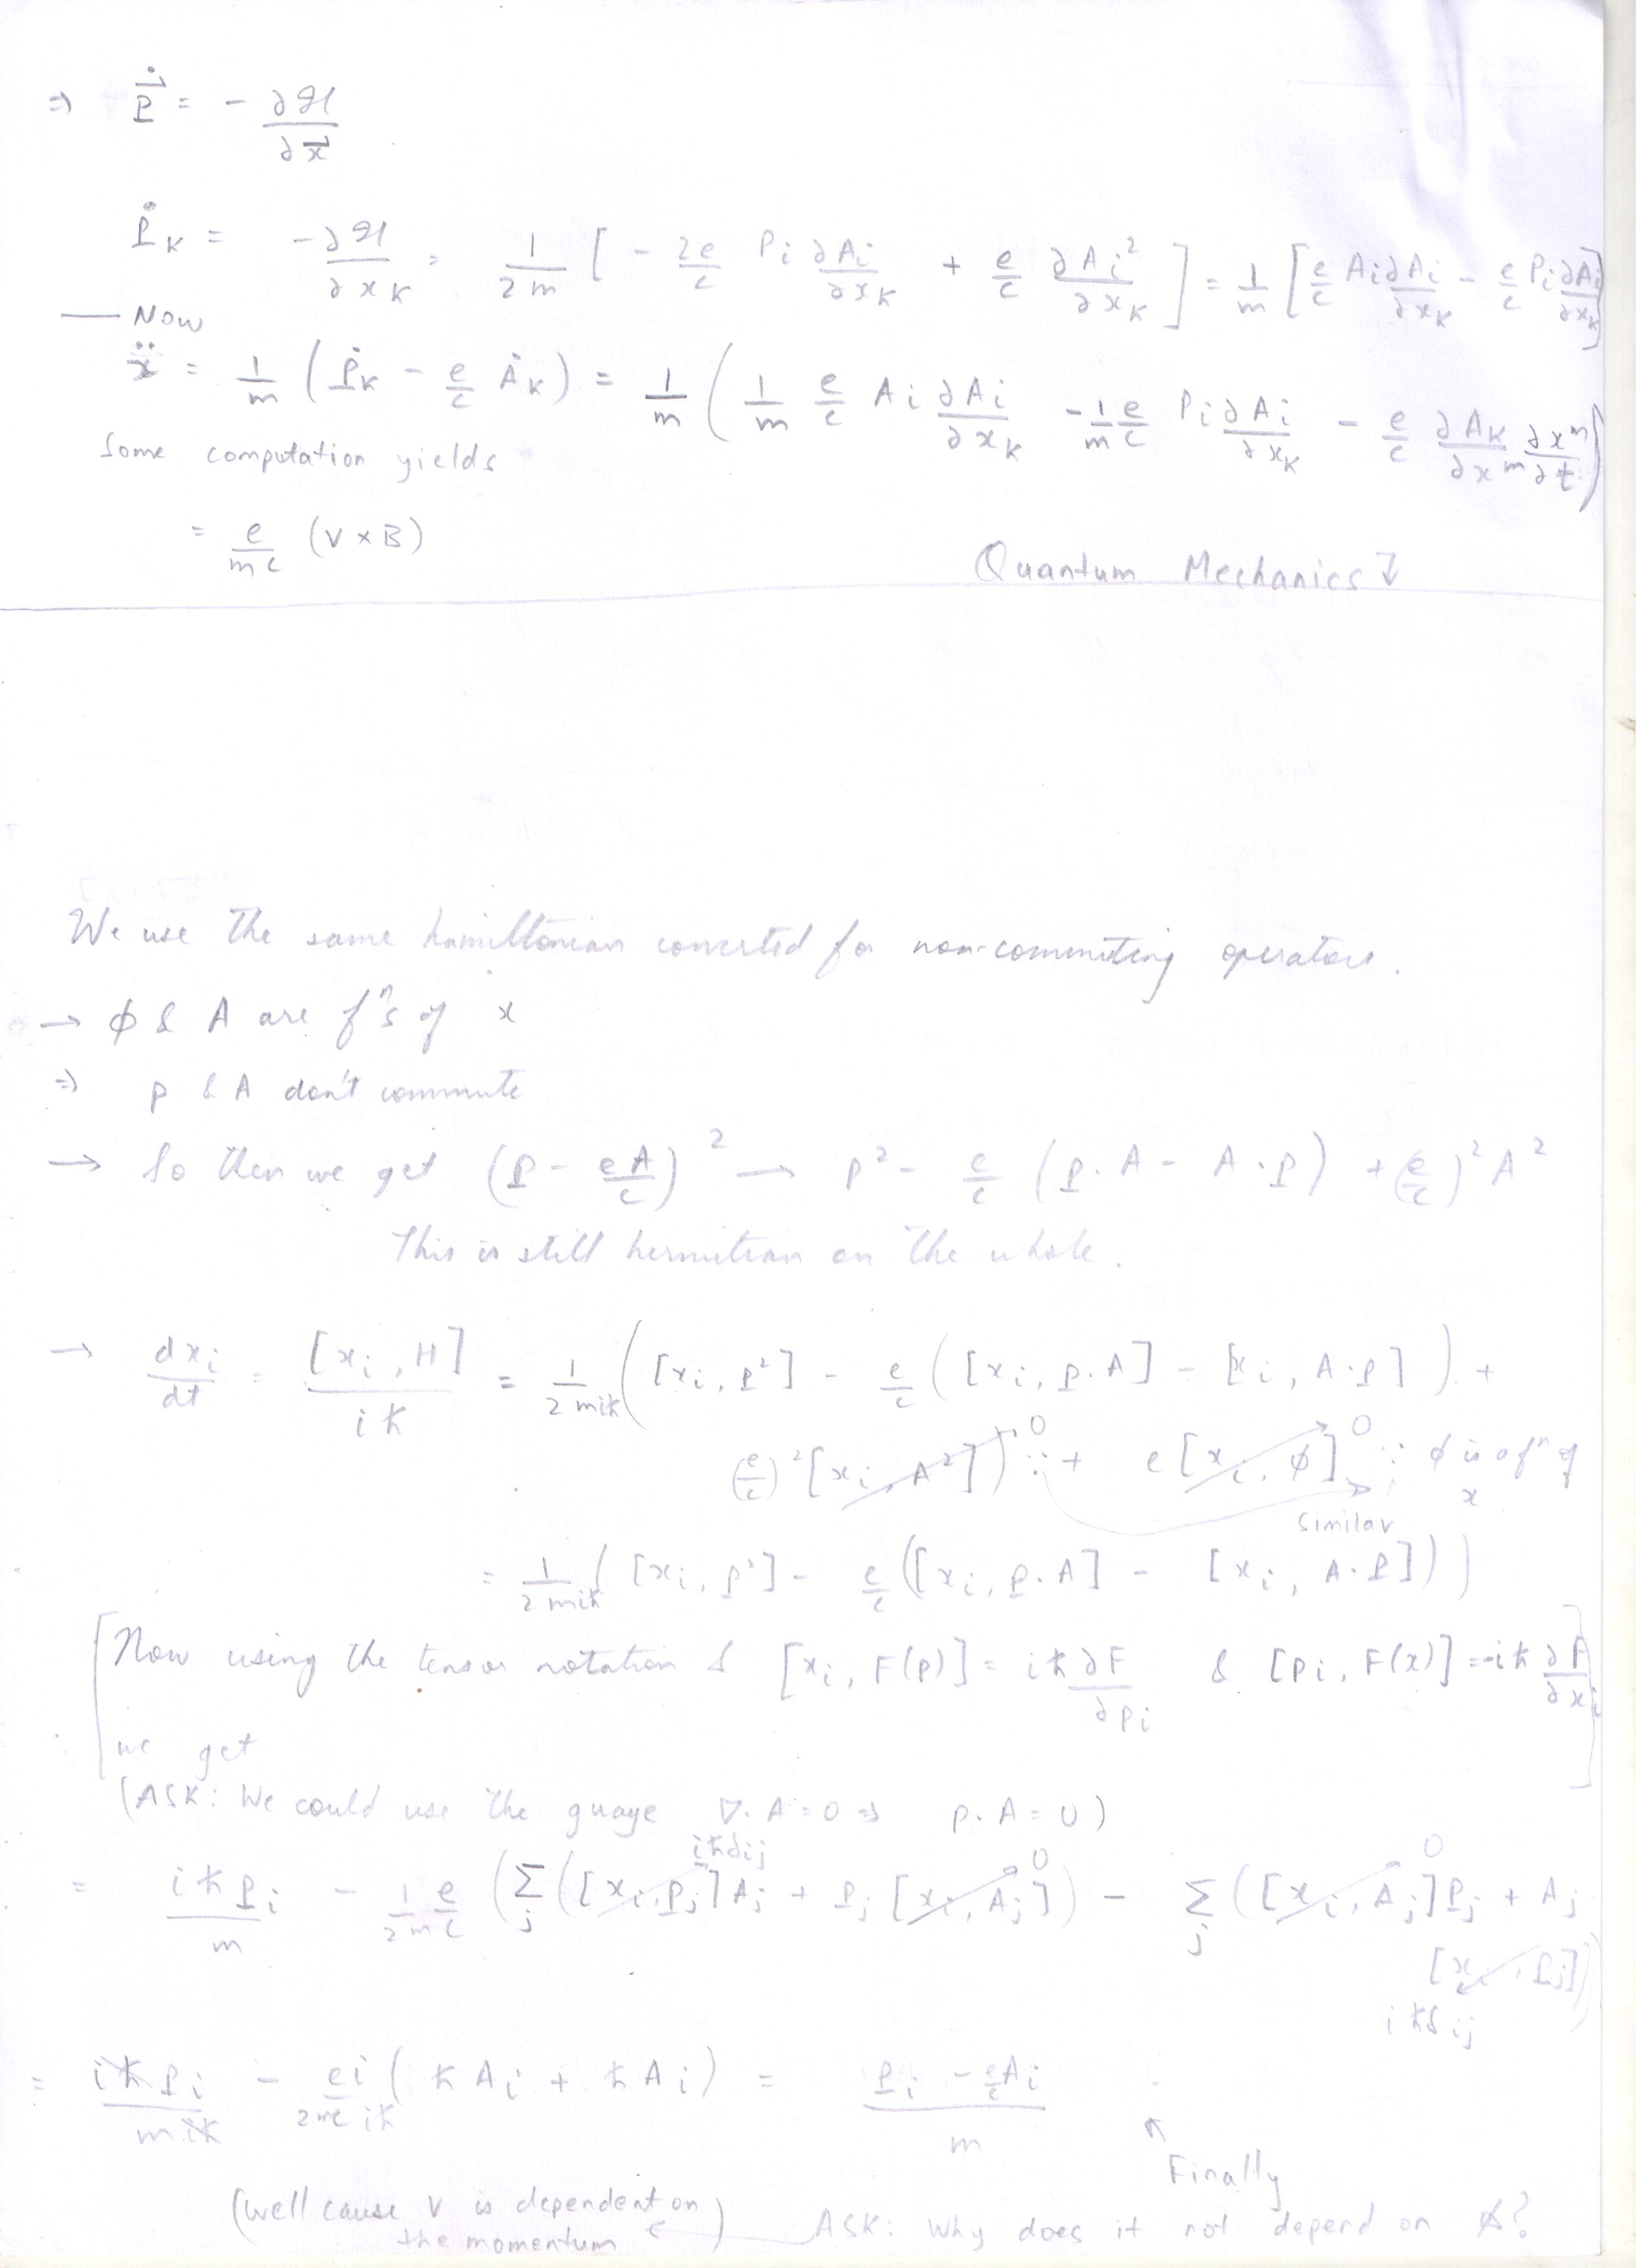 ⇒ \dot{\vec{P}} = - ∂H/∂\vec{x}
\dot{P}_K = -∂H/∂x_K = 1/2m [ - 2e/c P_i ∂A_i/∂x_K + e/c ∂A_i²/∂x_K ] = 1/m [ e/c A_i ∂A_i/∂x_K - e/c P_i ∂A_i/∂x_K ]
— Now
\ddot{x} = 1/m ( \dot{P}_K - e/c \dot{A}_K ) = 1/m ( 1/m e/c A_i ∂A_i/∂x_K - 1/m e/c P_i ∂A_i/∂x_K - e/c ∂A_K/∂x^m ∂x^m/∂t )
Some computation yields
= e/mc (V × B)
Quantum Mechanics ↓
We use the same hamiltonian converted for non-commuting operators.
→ φ & A are fⁿs of x
⇒ p & A don't commute
→ So then we get (P - eA/c)² → P² - e/c (P·A - A·P) + (e/c)² A²
This is still hermitian on the whole.
→ dx_i/dt = [x_i, H]/iħ = 1/2miħ ( [x_i, P²] - e/c ( [x_i, P·A] - [x_i, A·P] ) +
(e/c)² [x_i, A²] ) 0 ∵ + e [x_i, φ] 0 ∵ φ is a fⁿ of x
Similar
= 1/2miħ ( [x_i, P²] - e/c ( [x_i, P·A] - [x_i, A·P] ) )
[ Now using the tensor notation & [x_i, F(p)] = iħ ∂F/∂p_i & [p_i, F(x)] = -iħ ∂F/∂x_i
we get ]
(ASK: We could use the guage ∇·A = 0 ⇒ p·A = 0)
= iħP_i/m - 1/2m e/c ( Σ_j ( [x_i, P_j] iħδ_ij A_j + P_j [x_i, A_j] 0 ) - Σ_j ( [x_i, A_j] 0 P_j + A_j
[x_i, P_j] ) )
iħδ_ij
= iħP_i/miħ - ei/2mc iħ ( ħA_i + ħA_i ) = P_i - e/c A_i / m
↑ Finally
(Well cause V is dependent on the momentum) ← ASK: Why does it not depend on φ?